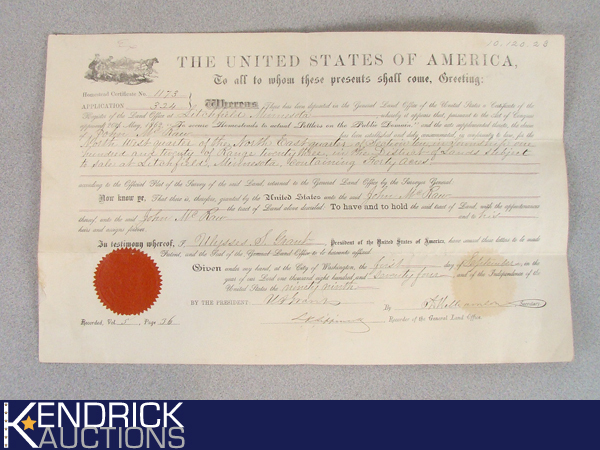 10. 120. 23
THE UNITED STATES OF AMERICA,
To all to whom these presents shall come, Greeting:
Homestead Certificate No. 1173
APPLICATION 3247
Whereas There has been deposited in the General Land Office of the United States a Certificate of the
Register of the Land Office at Litchfield, Minnesota, whereby it appears that, pursuant to the Act of Congress
approved 20th May, 1862, "To secure Homesteads to actual Settlers on the Public Domain," and the acts supplemental thereto, the claim
of John McRaw has been established and duly consummated, in conformity to law, for the
North West quarter of the North East quarter of Section ten in Township one
hundred and twenty of Range twenty three in the District of Lands subject
to sale at Litchfield, Minnesota, Containing Forty acres
according to the Official Plat of the Survey of the said Land, returned to the General Land Office by the Surveyor General.
Now know ye, That there is, therefore, granted by the United States unto the said John McRaw
the tract of Land above described: To have and to hold the said tract of Land, with the appurtenances
thereof, unto the said John McRaw and to his
heirs and assigns forever.
In testimony whereof, I Ulysses S. Grant, President of the United States of America, have caused these letters to be made
Patent, and the Seal of the General Land Office to be hereunto affixed.
Given under my hand, at the City of Washington, the first day of September, in the
year of our Lord one thousand eight hundred and Seventy four, and of the Independence of the
United States the ninety ninth
BY THE PRESIDENT: U S Grant
By Secretary
Recorded, Vol. 5, Page 36
Recorder of the General Land Office.
KENDRICK
AUCTIONS